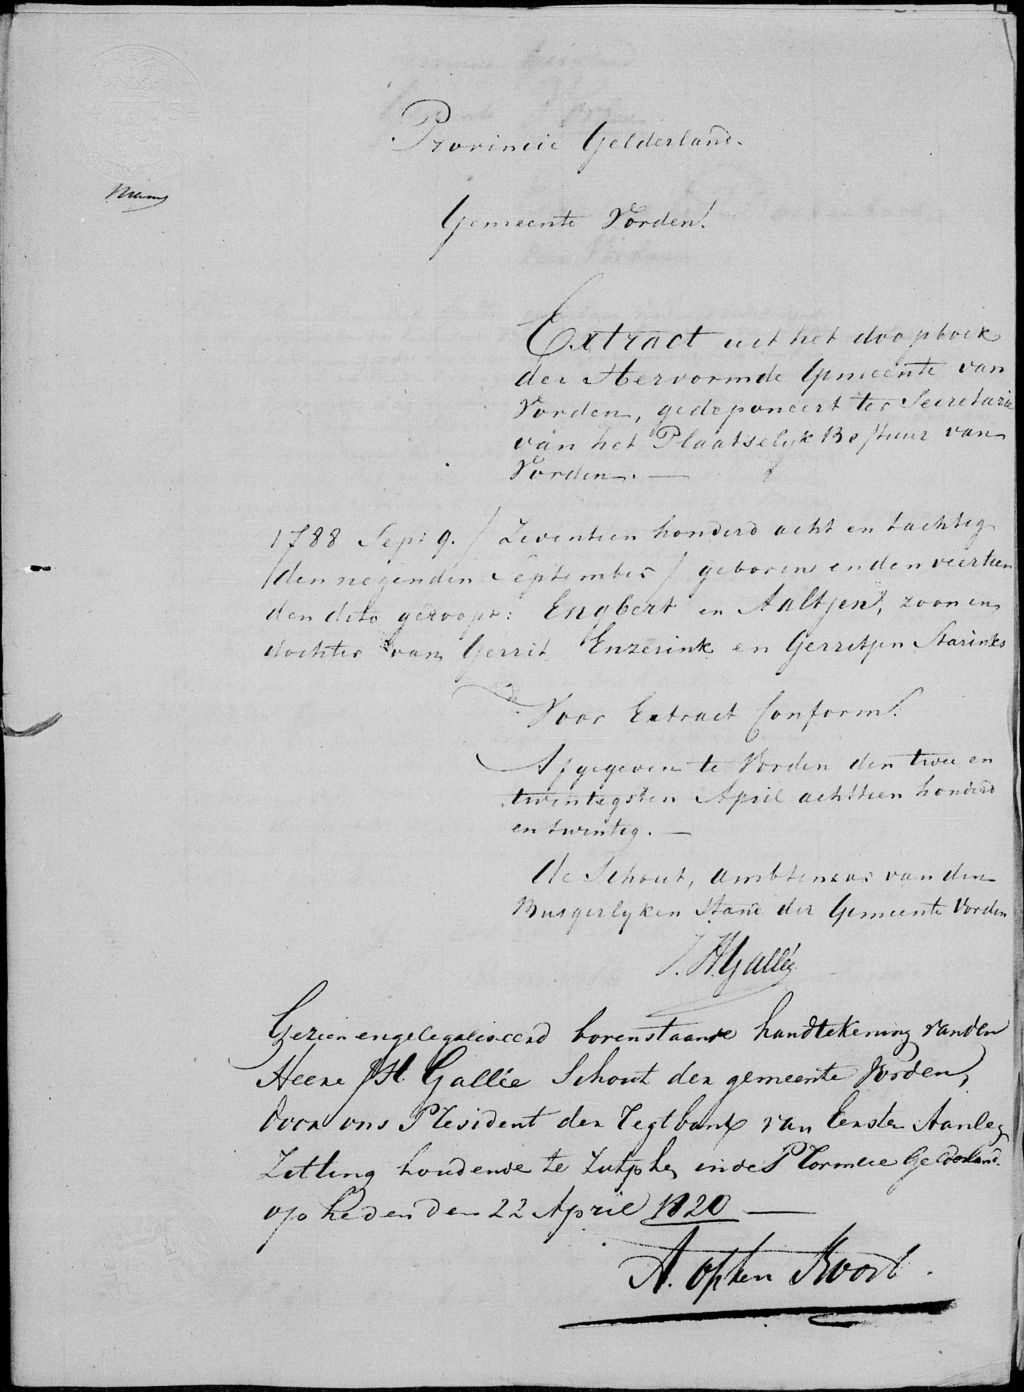 Provincie Gelderland.
Gemeente Vorden.
Extract uit het doopboek
der Hervormde Gemeente van
Vorden, gedeponeert ter Secretarie
van het Plaatselyk Bestuur van
Vorden. —
1788 Sept 9. / Zeventien honderd acht en tachtig
den negenden September / geboren en den veertien
den dito gedoopt: Engbert en Aaltjen, zoon en
dochter van Gerrit Enzerink en Gerretjen Starinks
Voor Extract Conform.
Afgegeven te Vorden den twee en
twintigsten April achttien honderd
en twintig. —
de Schout, ambtenaar van den
Burgerlyken Stand der Gemeente Vorden
J. H. Gallée
Gezien en gelegaliseerd bovenstaande handtekening van den
Heere J H. Gallée Schout der gemeente Vorden,
door ons President der Regtbank van Eersten Aanleg
Zitting houdende te Zutphen in de Provincie Gelderland.
op heden den 22 April 1820 —
A. opten Noort.